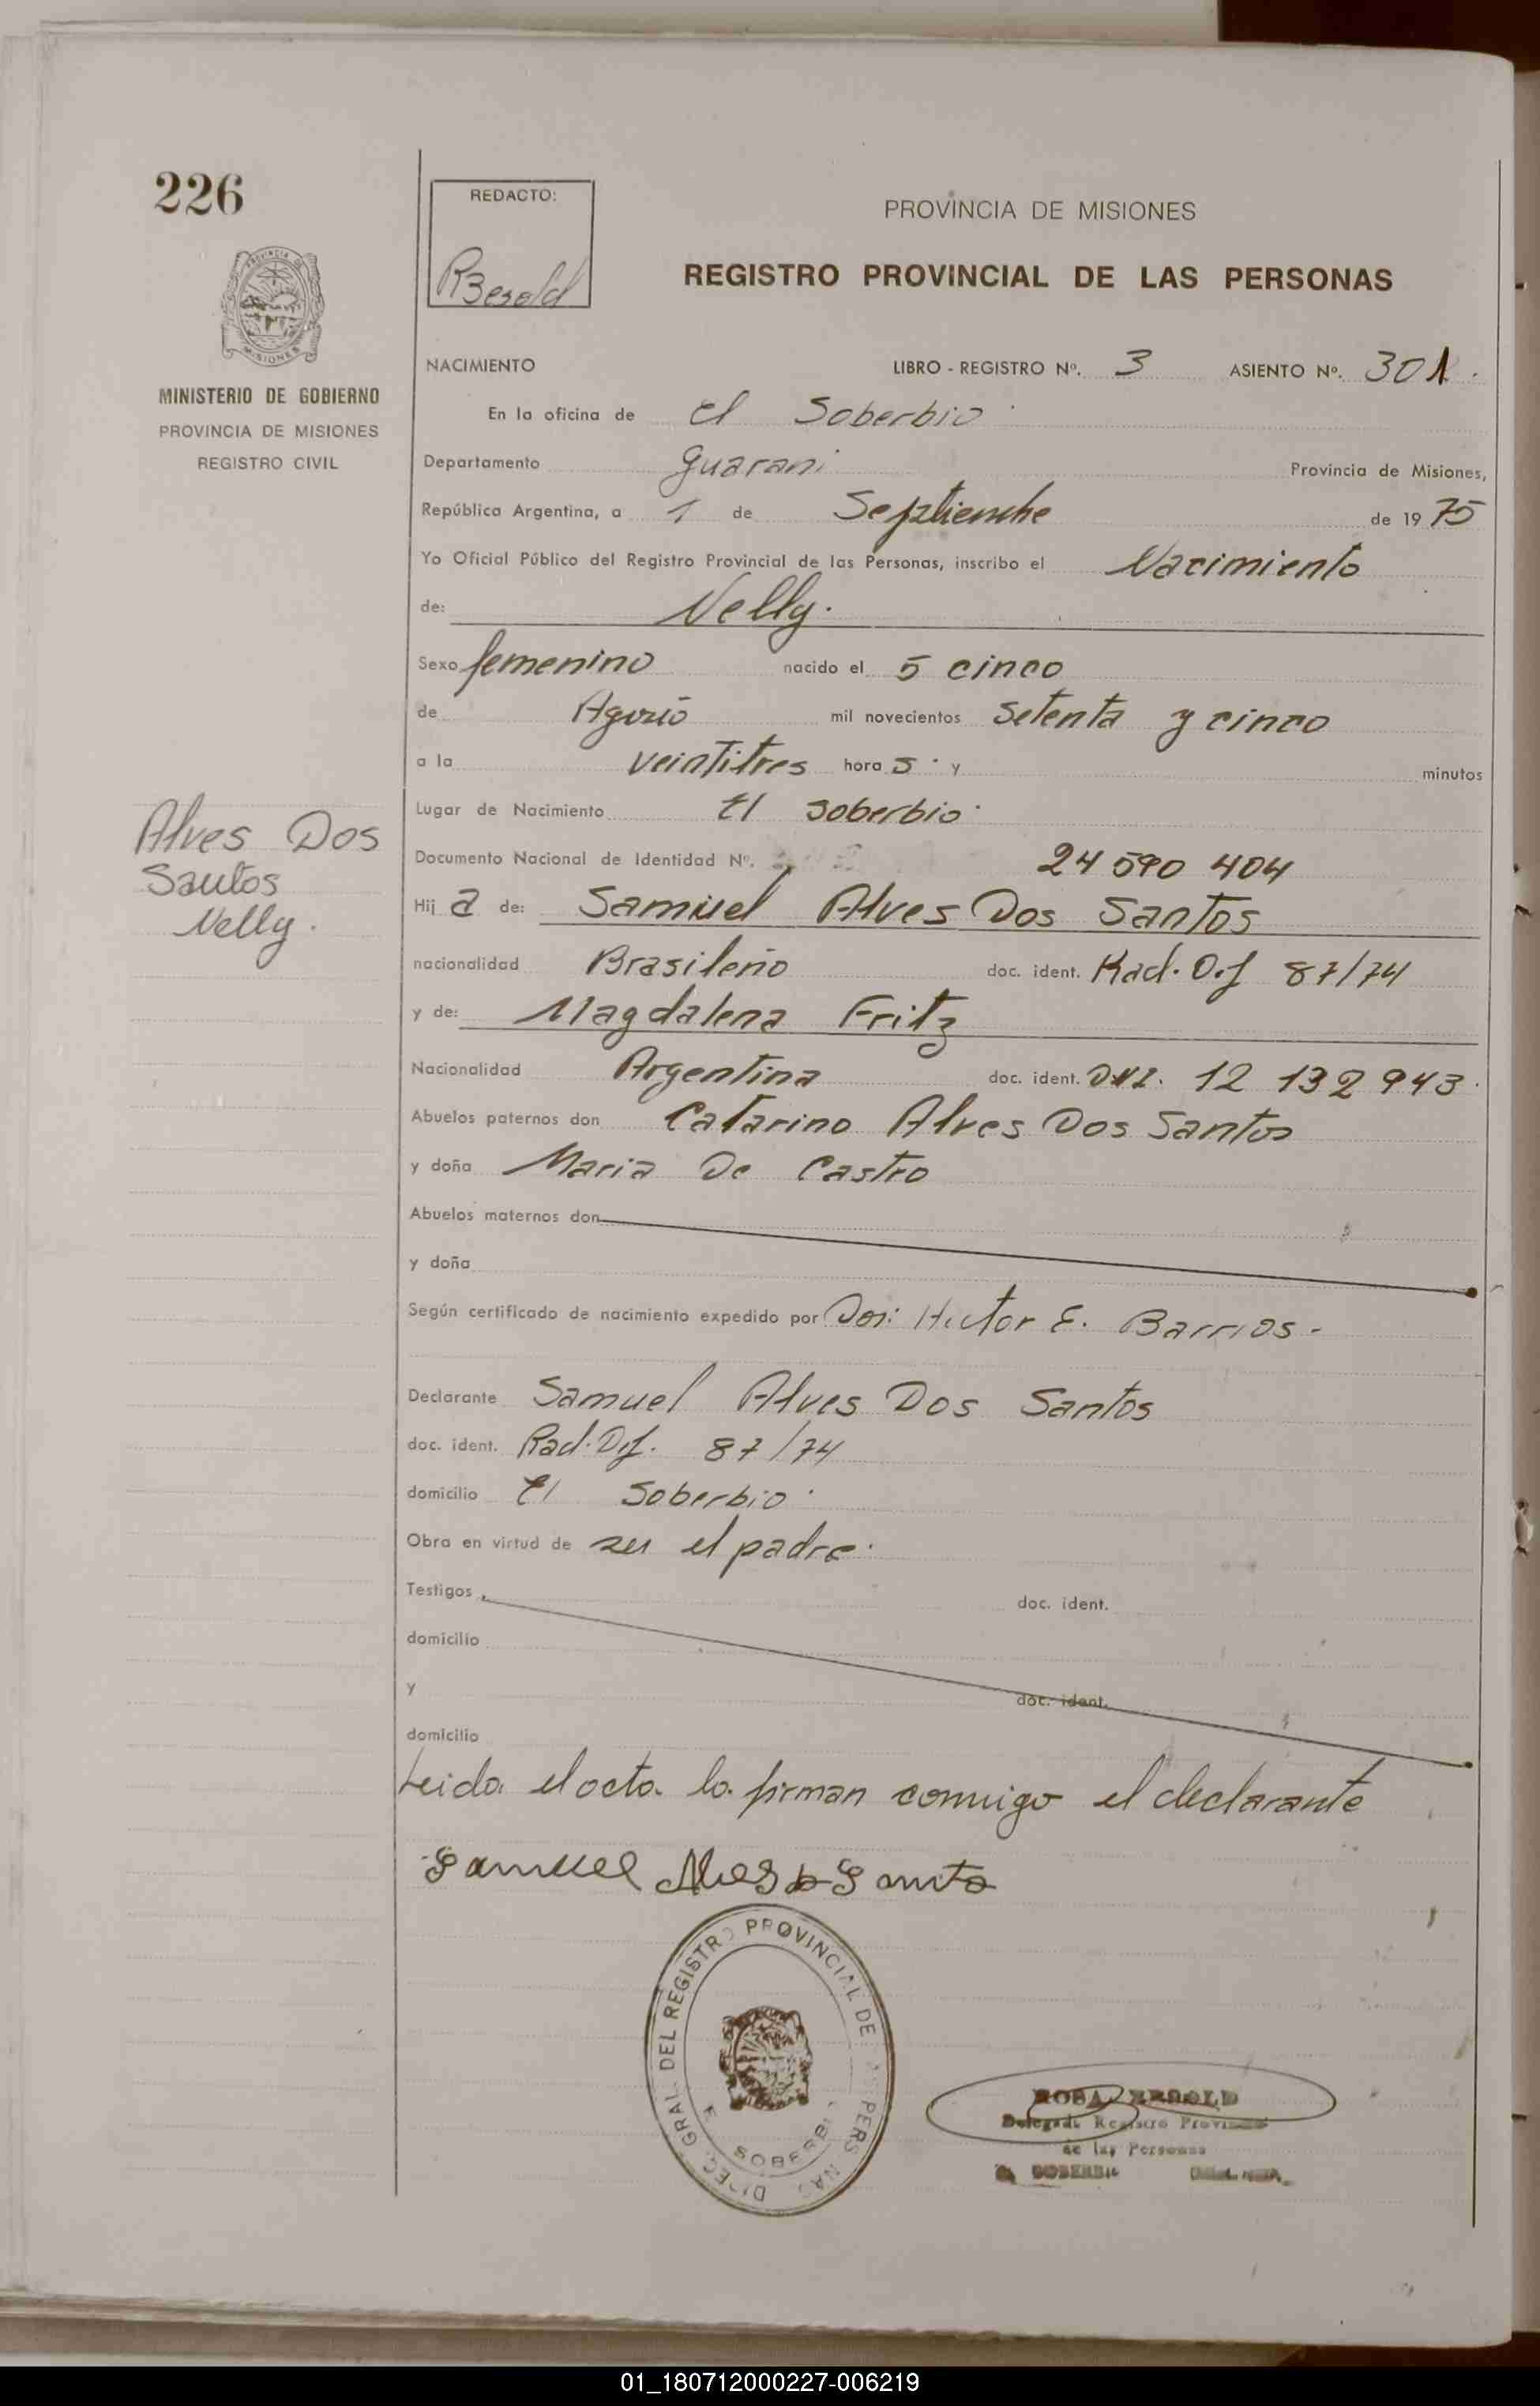 226
REDACTO:
RBesold
PROVINCIA DE MISIONES
REGISTRO PROVINCIAL DE LAS PERSONAS
PROVINCIA DE
MISIONES
MINISTERIO DE GOBIERNO
PROVINCIA DE MISIONES
REGISTRO CIVIL
NACIMIENTO LIBRO - REGISTRO Nº. 3 ASIENTO Nº. 301.
En la oficina de El Soberbio.
Departamento Guarani Provincia de Misiones,
República Argentina, a 1 de Septiembre de 1975
Yo Oficial Público del Registro Provincial de las Personas, inscribo el Nacimiento
de: Nelly.
Sexo femenino nacido el 5 cinco
de Agosto mil novecientos Setenta y cinco
a la veintitres hora s. y minutos
Lugar de Nacimiento El Soberbio.
Alves Dos
Santos
Nelly.
Documento Nacional de Identidad Nº. 24 590 404
Hij a de: Samuel Alves Dos Santos
nacionalidad Brasileño doc. ident. Rad. Def 87/74
y de: Magdalena Fritz
Nacionalidad Argentina doc. ident. DNI. 12 132 943.
Abuelos paternos don Catarino Alves Dos Santos
y doña Maria De Castro
Abuelos maternos don
y doña
Según certificado de nacimiento expedido por Dor: Hector E. Barrios -
Declarante Samuel Alves Dos Santos
doc. ident. Rad. Def. 87/74
domicilio El Soberbio.
Obra en virtud de ser el padre.
Testigos doc. ident.
domicilio
y doc. ident.
domicilio
Leida el acta la firman conmigo el declarante
Samuel Alves do Santo
DIREC. GRAL. DEL REGISTRO PROVINCIAL DE PERSONAS
SOBERBIO
ROSA BESOLD
Delegada Registro Provincial
de las Personas
SOBERBIO
01_180712000227-006219